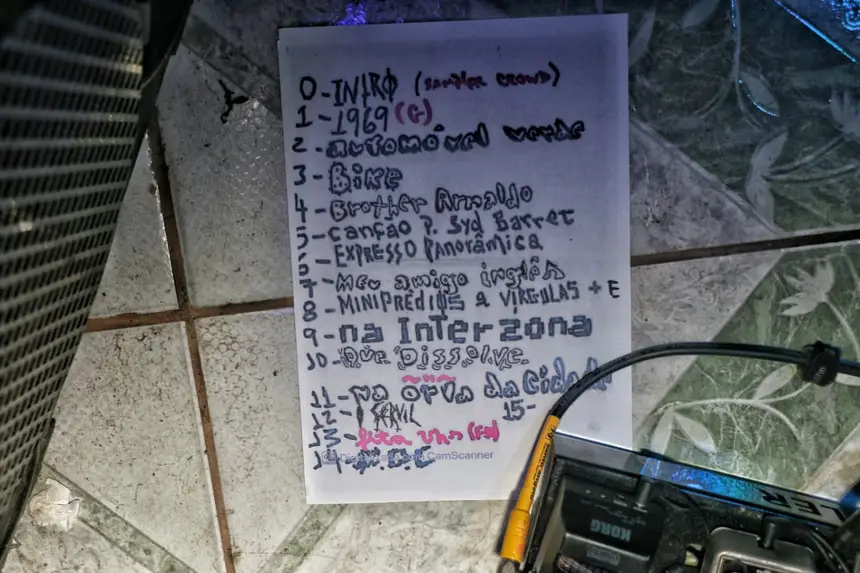 0-INTRO (SAMPLER CROWD)
1-1969 (G)
2-automóvel verde
3-Bike
4-Brother Arnaldo
5-canção P. Syd Barret
6-EXPRESSO Panorâmica
7-meu amigo inglês
8-MINIPRÉDIOS & VÍRGULAS + E
9-na Interzona
10-Que Dissolve
11-na orva da Cidade
12- 15-
13-fita vhs
14-
CamScanner
KORG
LER